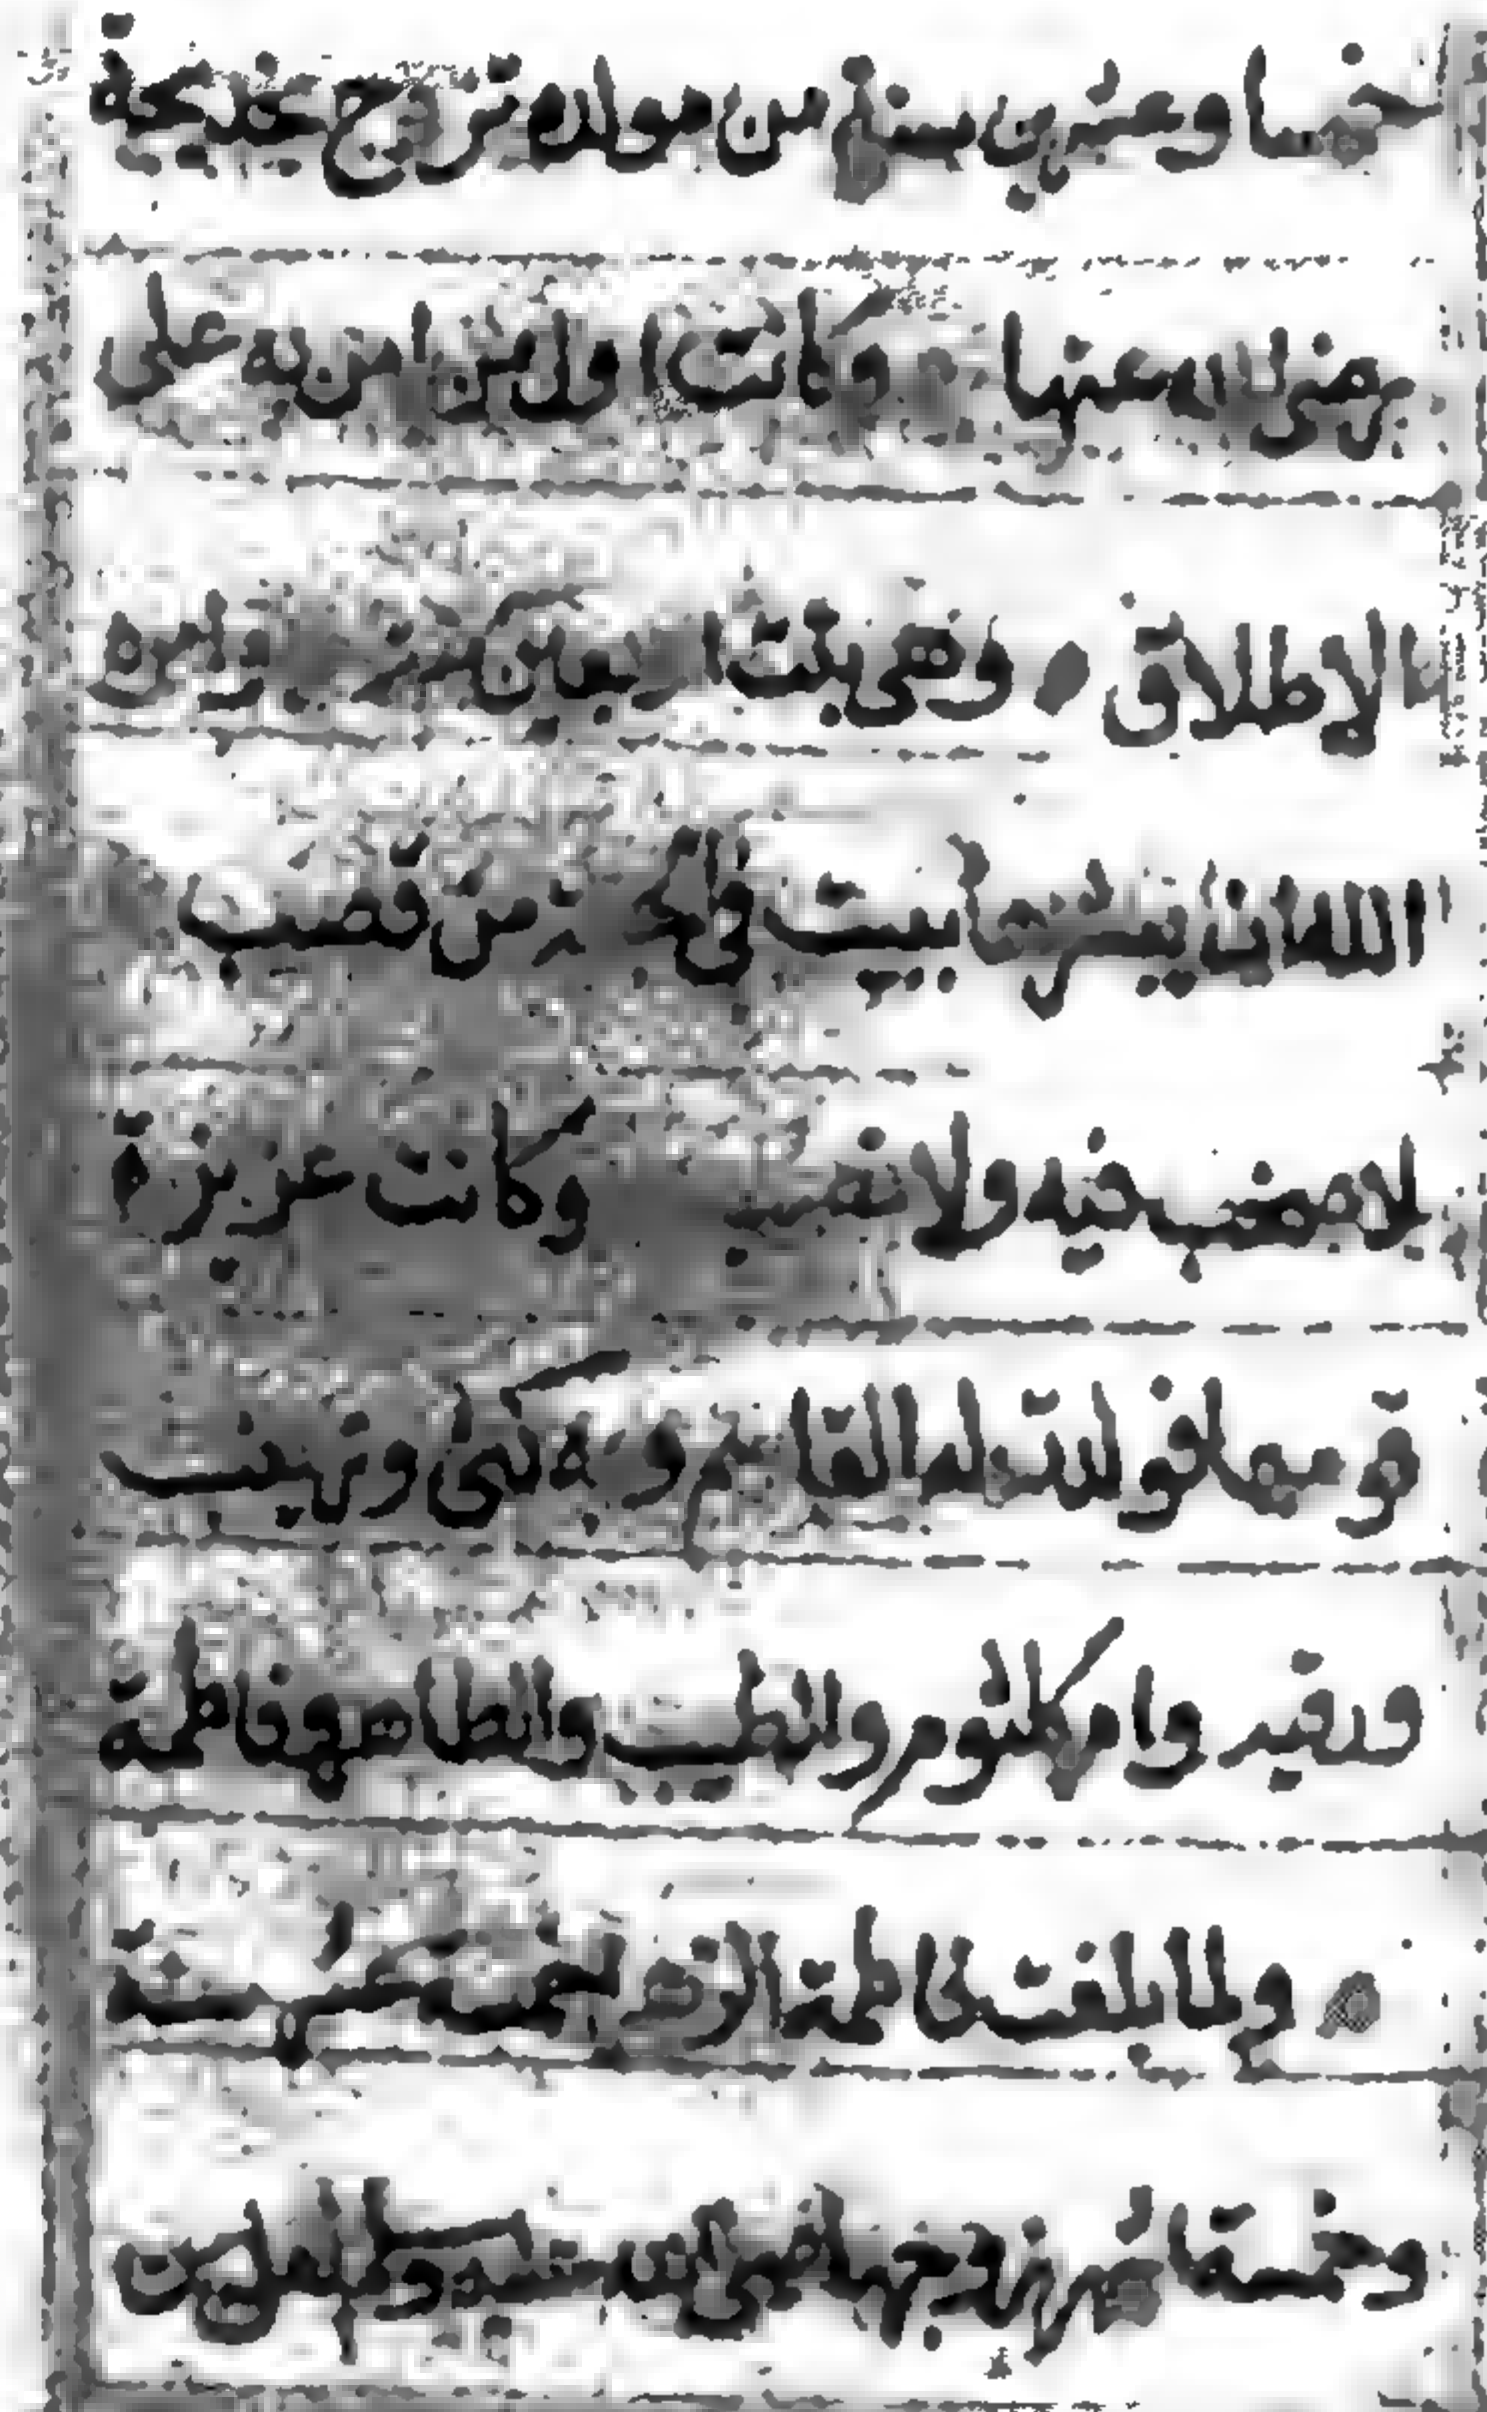 خمسا وعشرين سنة من مولده تزوج بخديجة
رضي الله عنها وكانت اول من امن به على
الاطلاق وهي بنت اربعين سنة وامره
الله ان يبشرها ببيت في الجنة من قصب
لا صخب فيه ولا نصب وكانت عزيزة
قومها فولدت له القاسم وبه كنى وزينب
ورقية وام كلثوم والطيب والطاهر وفاطمة
ولما بلغت فاطمة الزهرا خمسة عشر سنة
وخمسة اشهر زوجها